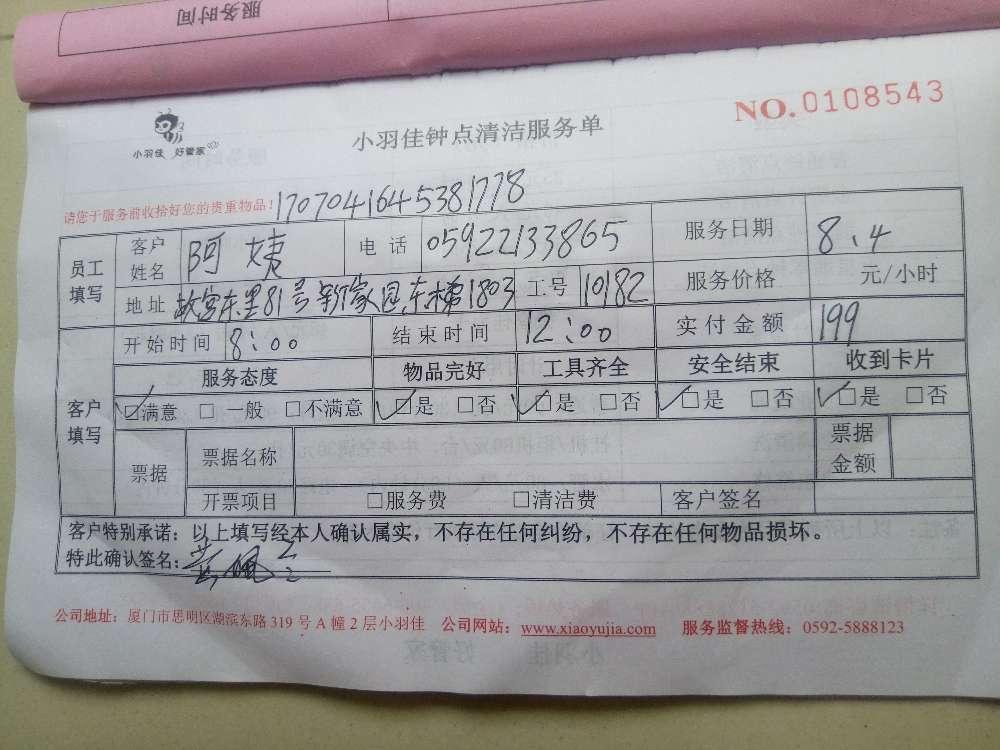 服务时间
NO.0108543
小羽佳 好管家
小羽佳钟点清洁服务单
请您于服务前收拾好您的贵重物品! 1707041645381778
员工填写 客户姓名 阿姨 电话 05922133865 服务日期 8.4
地址 故宫东里81号新家园东梯1803 工号 10182 服务价格 元/小时
开始时间 8:00 结束时间 12:00 实付金额 199
客户填写 服务态度 物品完好 工具齐全 安全结束 收到卡片
☑满意 □一般 □不满意 ☑是 □否 ☑是 □否 ☑是 □否 ☑是 □否
票据 票据名称 票据金额
开票项目 □服务费 □清洁费 客户签名
客户特别承诺：以上填写经本人确认属实，不存在任何纠纷，不存在任何物品损坏。
特此确认签名：黄佩
公司地址：厦门市思明区湖滨东路319号A幢2层小羽佳 公司网站：www.xiaoyujia.com 服务监督热线：0592-5888123